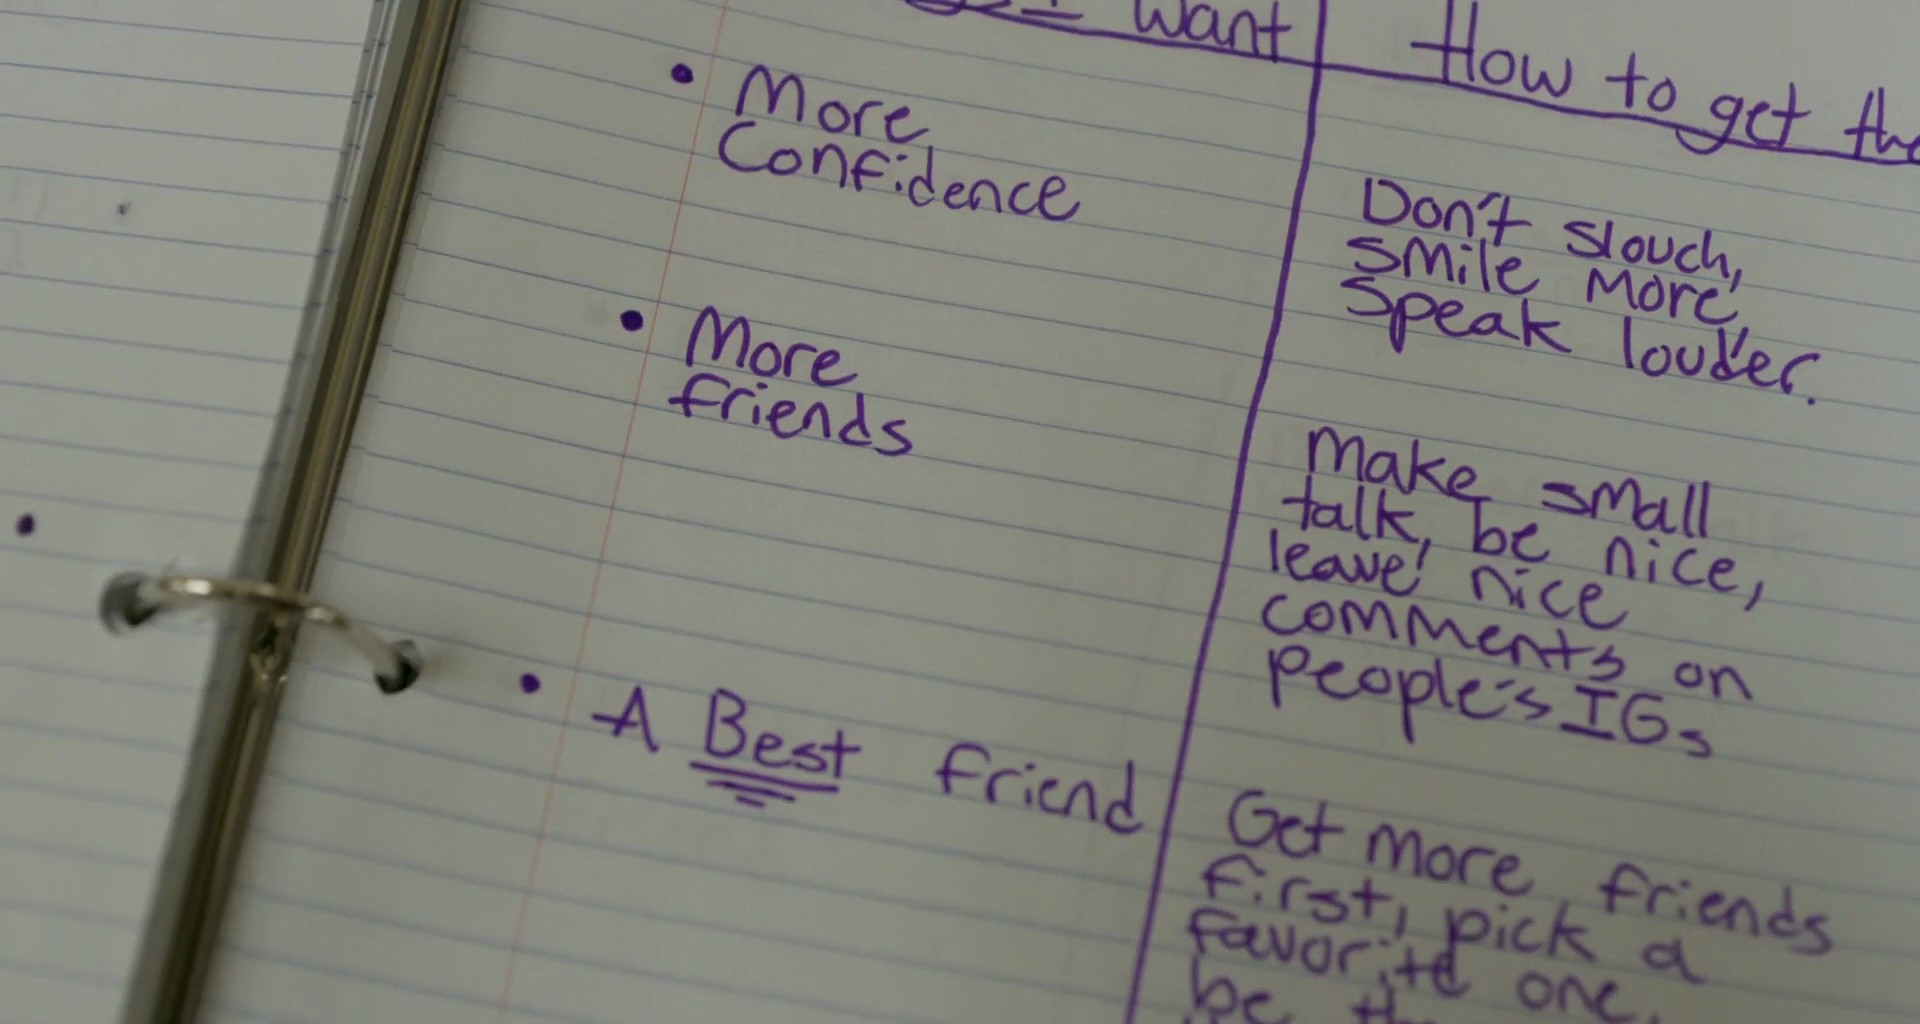 I Want
How to get
• More
Confidence
Don't slouch,
smile more,
speak louder.
• More
friends
Make small
talk, be nice,
leave nice
comments on
people's IGs
• A Best friend
Get more friends
first, pick a
favorite one,
be